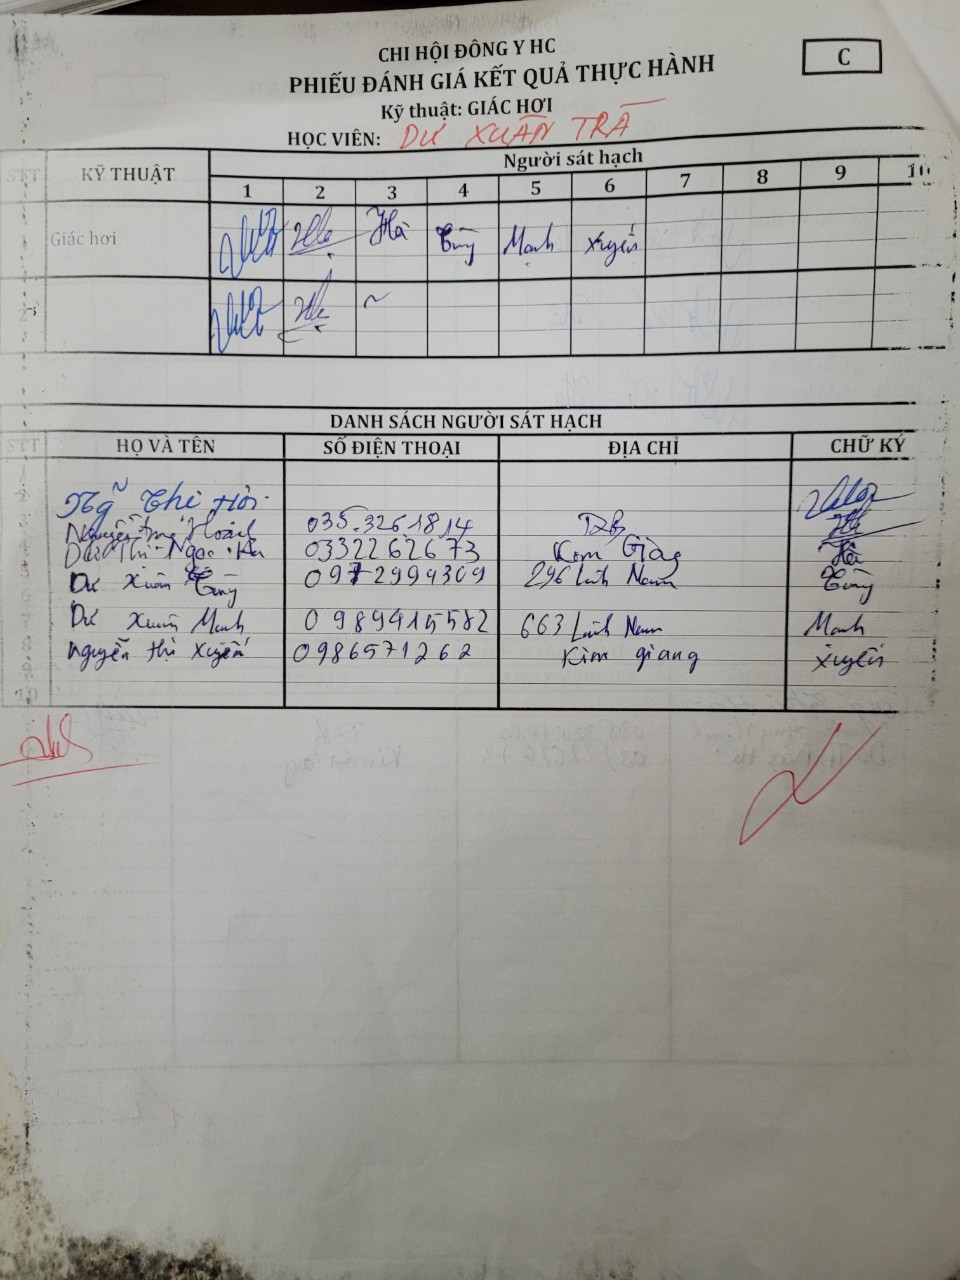 CHI HỘI ĐÔNG Y HC
PHIẾU ĐÁNH GIÁ KẾT QUẢ THỰC HÀNH
C
Kỹ thuật: GIÁC HƠI
HỌC VIÊN: DƯ XUÂN TRÃ
STT KỸ THUẬT Người sát hạch
1 2 3 4 5 6 7 8 9 10
1 Giác hơi Hà Tùng Mạnh Xuyến
2
DANH SÁCH NGƯỜI SÁT HẠCH
STT HỌ VÀ TÊN SỐ ĐIỆN THOẠI ĐỊA CHỈ CHỮ KÝ
Thị
Nguyễn 035.3261814
Dư Thị Ngọc Hà 0332262673 Kim Giang Hà
Dư Xuân Tùng 0972994309 296 Lĩnh Nam Tùng
Dư Xuân Mạnh 0989415582 663 Lĩnh Nam Mạnh
Nguyễn thị Xuyến 0986571262 Kim giang Xuyến
10